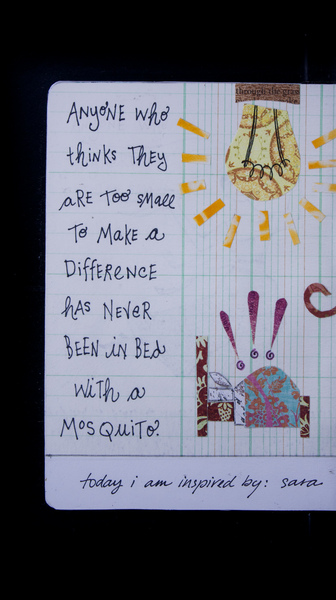 through the gras
ANyoNE who
thinks They
aRE Too small
To MakE a
DiffERENCE
has NEVER
BEEN in BEd
With a
MosQuiTo?
today i am inspired by: sara